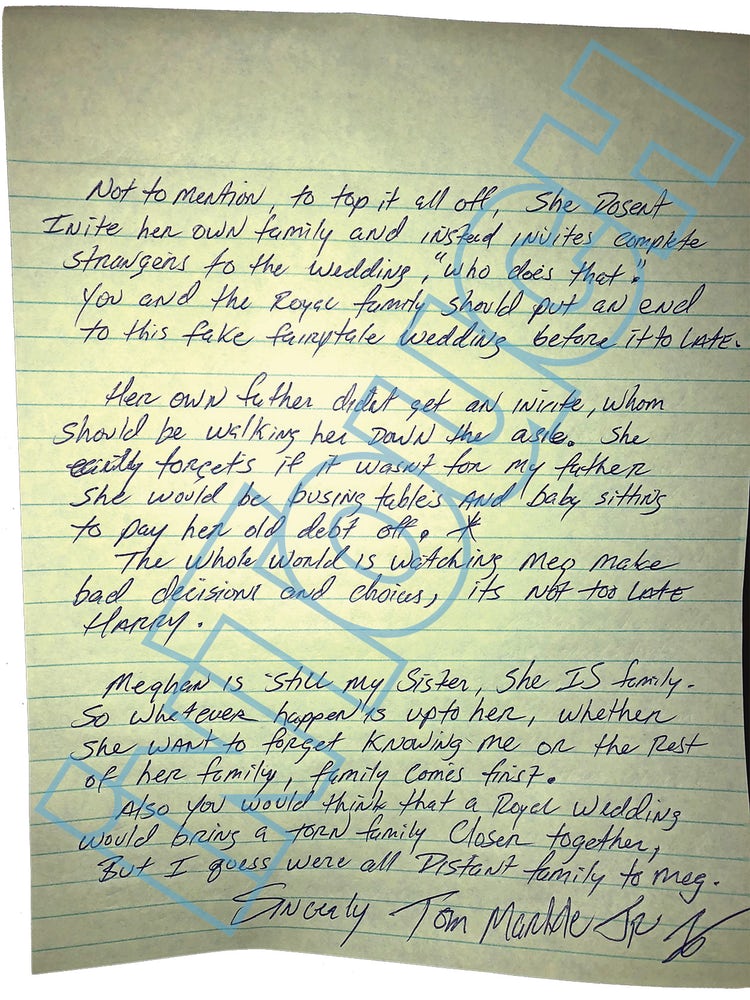 Not to mention, to top it all off, She Dosent
Inite her own family and instead invites complete
strangers to the wedding, "who does that."
You and the Royal family should put an end
to this fake fairytale wedding before it to LATE.
Her own father didnt get an invite, whom
should be walking her Down the asle. She
forgets if it wasnt for my father
She would be busing tables AND baby sitting
to pay her old debt off. *
The whole world is watching Meg make
bad decisions and choices, its NOT too LATE
HARRY.
Meghan is still my Sister, She IS family.
So whatever happen is upto her, whether
She WANT to forget knowing me or the Rest
of her family, family comes first.
Also you would think that a Royal wedding
would bring a torn family Closer together,
But I guess were all Distant family to Meg.
Sincerly Tom Markle Jr
INTOUCH